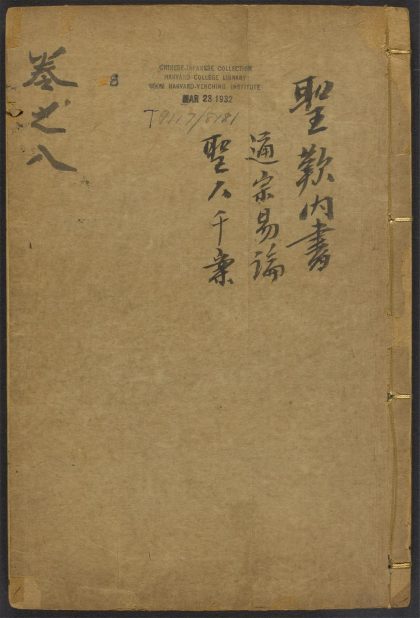 聖歎內書
通宗易論
聖人千案
卷之八
8
CHINESE-JAPANESE COLLECTION
HARVARD COLLEGE LIBRARY
HARVARD-YENCHING INSTITUTE
MAR 23 1932
T9117/8181